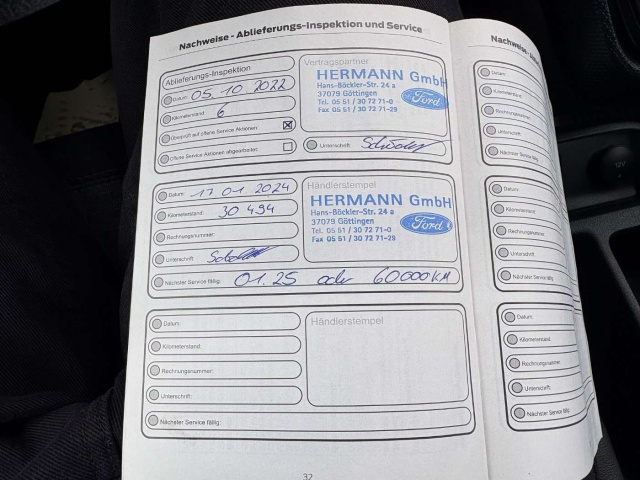 Nachweise - Ablieferungs-Inspektion und Service
Ablieferungs-Inspektion
Datum: 05.10.2022
Kilometerstand: 6
Überprüft auf offene Service Aktionen: X
Offene Service Aktionen abgearbeitet:
Vertragspartner
HERMANN GmbH
Hans-Böckler-Str. 24 a
37079 Göttingen
Tel. 05 51 / 30 72 71-0
Fax 05 51 / 30 72 71-29
Ford
Unterschrift:
Datum: 17.01.2024
Kilometerstand: 30 494
Rechnungsnummer:
Unterschrift:
Händlerstempel
HERMANN GmbH
Hans-Böckler-Str. 24 a
37079 Göttingen
Tel. 05 51 / 30 72 71-0
Fax 05 51 / 30 72 71-29
Ford
Nächster Service fällig: 01.25 oder 60000 KM
Datum:
Kilometerstand:
Rechnungsnummer:
Unterschrift:
Händlerstempel
Nächster Service fällig:
32
Nachweise-
Datum:
Kilometerstand:
Rechnungsnummer:
Unterschrift:
Nächster Service fällig:
Datum:
Kilometerstand:
Rechnungsnumme
Unterschrift:
Nächster Service fällig
Datum:
Kilometerstand:
Rechnungsnumme
Unterschrift:
Nächster Service fällig:
12V